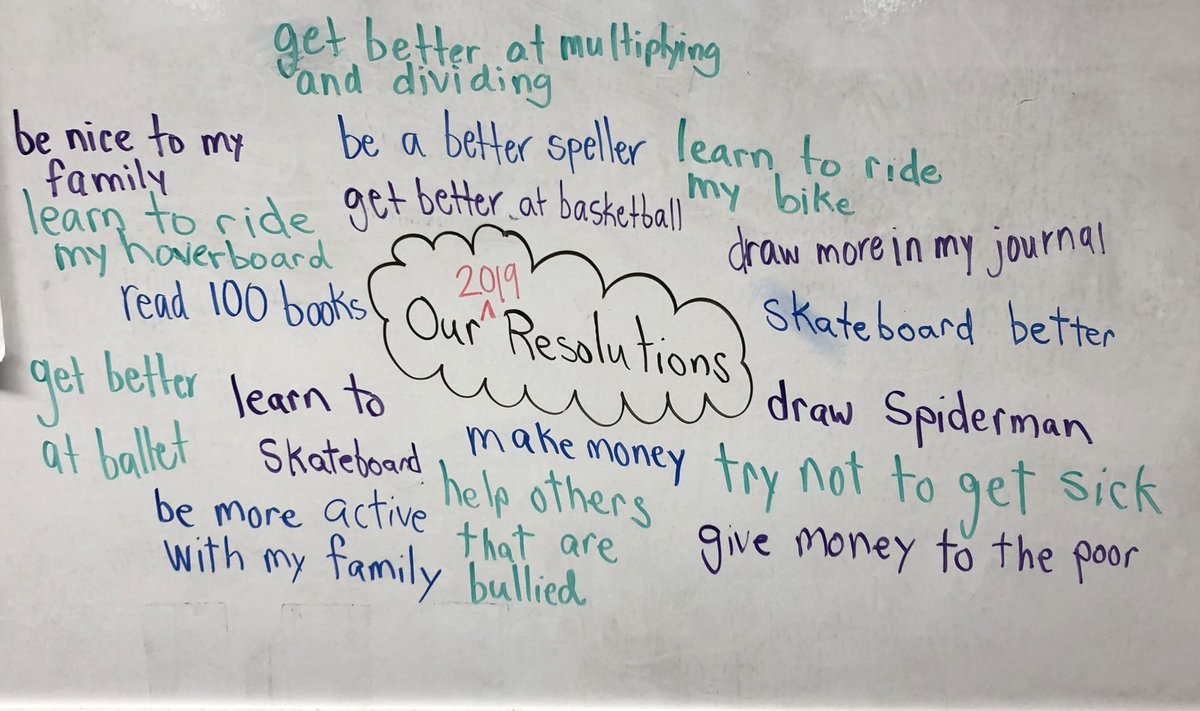 get better at multiplying
and dividing
be nice to my
family
be a better speller
learn to ride
my bike
learn to ride
my hoverboard
get better at basketball
draw more in my journal
read 100 books
2019
Our Resolutions
skateboard better
get better
at ballet
learn to
skateboard
draw Spiderman
make money
try not to get sick
be more active
with my family
help others
that are
bullied
give money to the poor